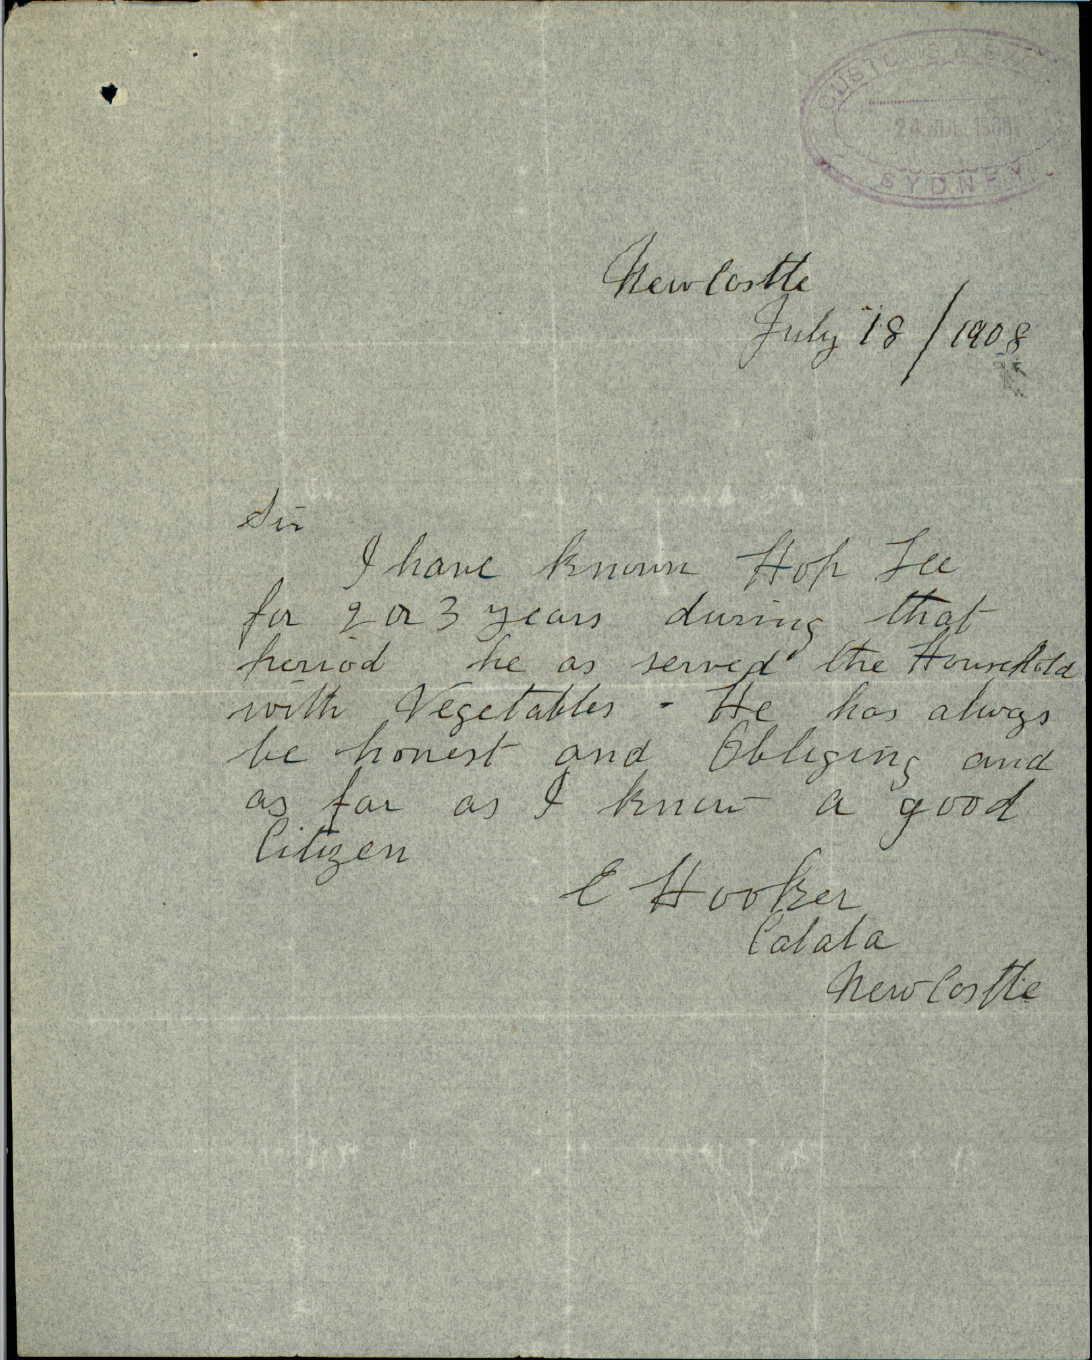 CUSTOMS &
24 JUL 1908
SYDNEY
Newcastle
July 18/1908
Sir
I have known Hop Lee
for 2 or 3 years during that
period he as served the Household
with Vegetables - He has always
be honest and Obliging and
as far as I know a good
Citizen
E Hooker
Calala
Newcastle